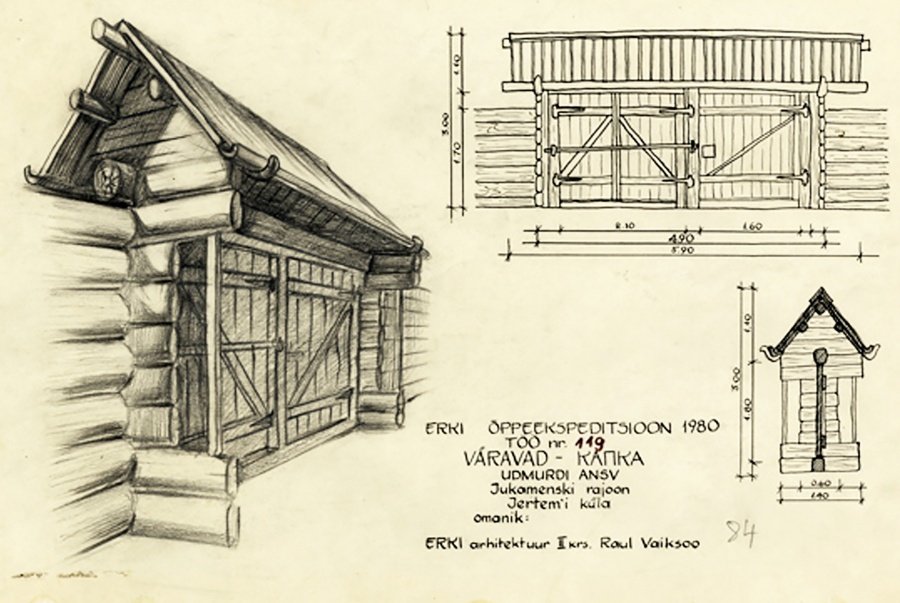 1.40
3.00
1.70
2.10 1.60
4.90
5.90
1.40
3.00
1.80
0.60
1.40
ERKI ÕPPEEKSPEDITSIOON 1980
TÖÖ nr. 119
VÄRAVAD - КАПКА
UDMURDI ANSV
Jukamenski rajoon
Jertem'i küla
omanik:
ERKI arhitektuur II krs. Raul Vaiksoo
84